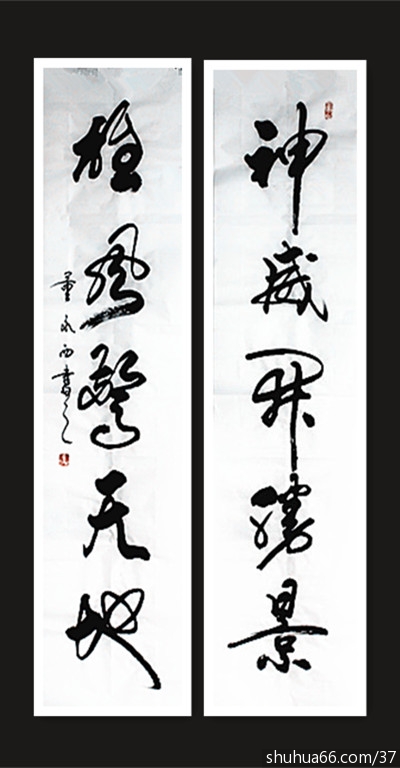 神威開勝景
雄風驚天地
董永西書之
shuhua66.com/37